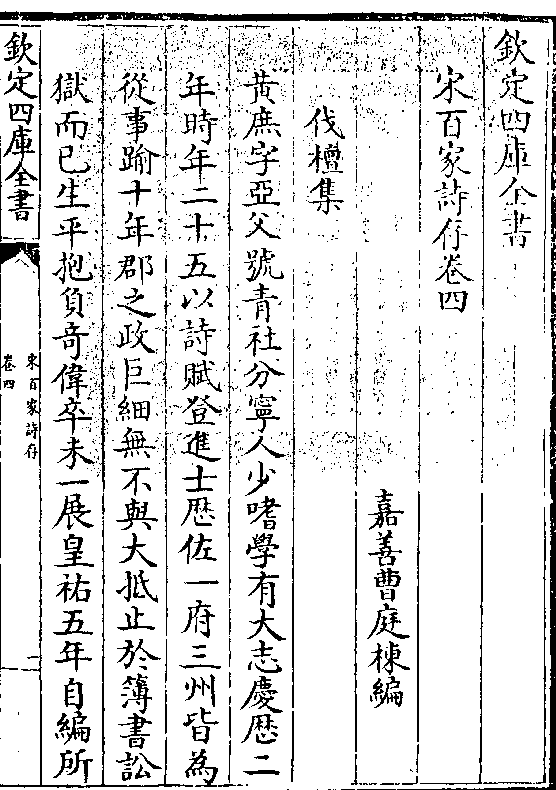 欽定四庫全書
宋百家詩存卷四
嘉善曹庭棟編
伐檀集
黄庶字亞父號青社分寧人少嗜學有大志慶厯二
年時年二十五以詩賦登進士厯佐一府三州皆為
從事踰十年郡之政巨細無不與大抵止於簿書訟
獄而已生平抱負竒偉卒未一展皇祐五年自編所
欽定四庫全書
宋百家詩存
卷四
一